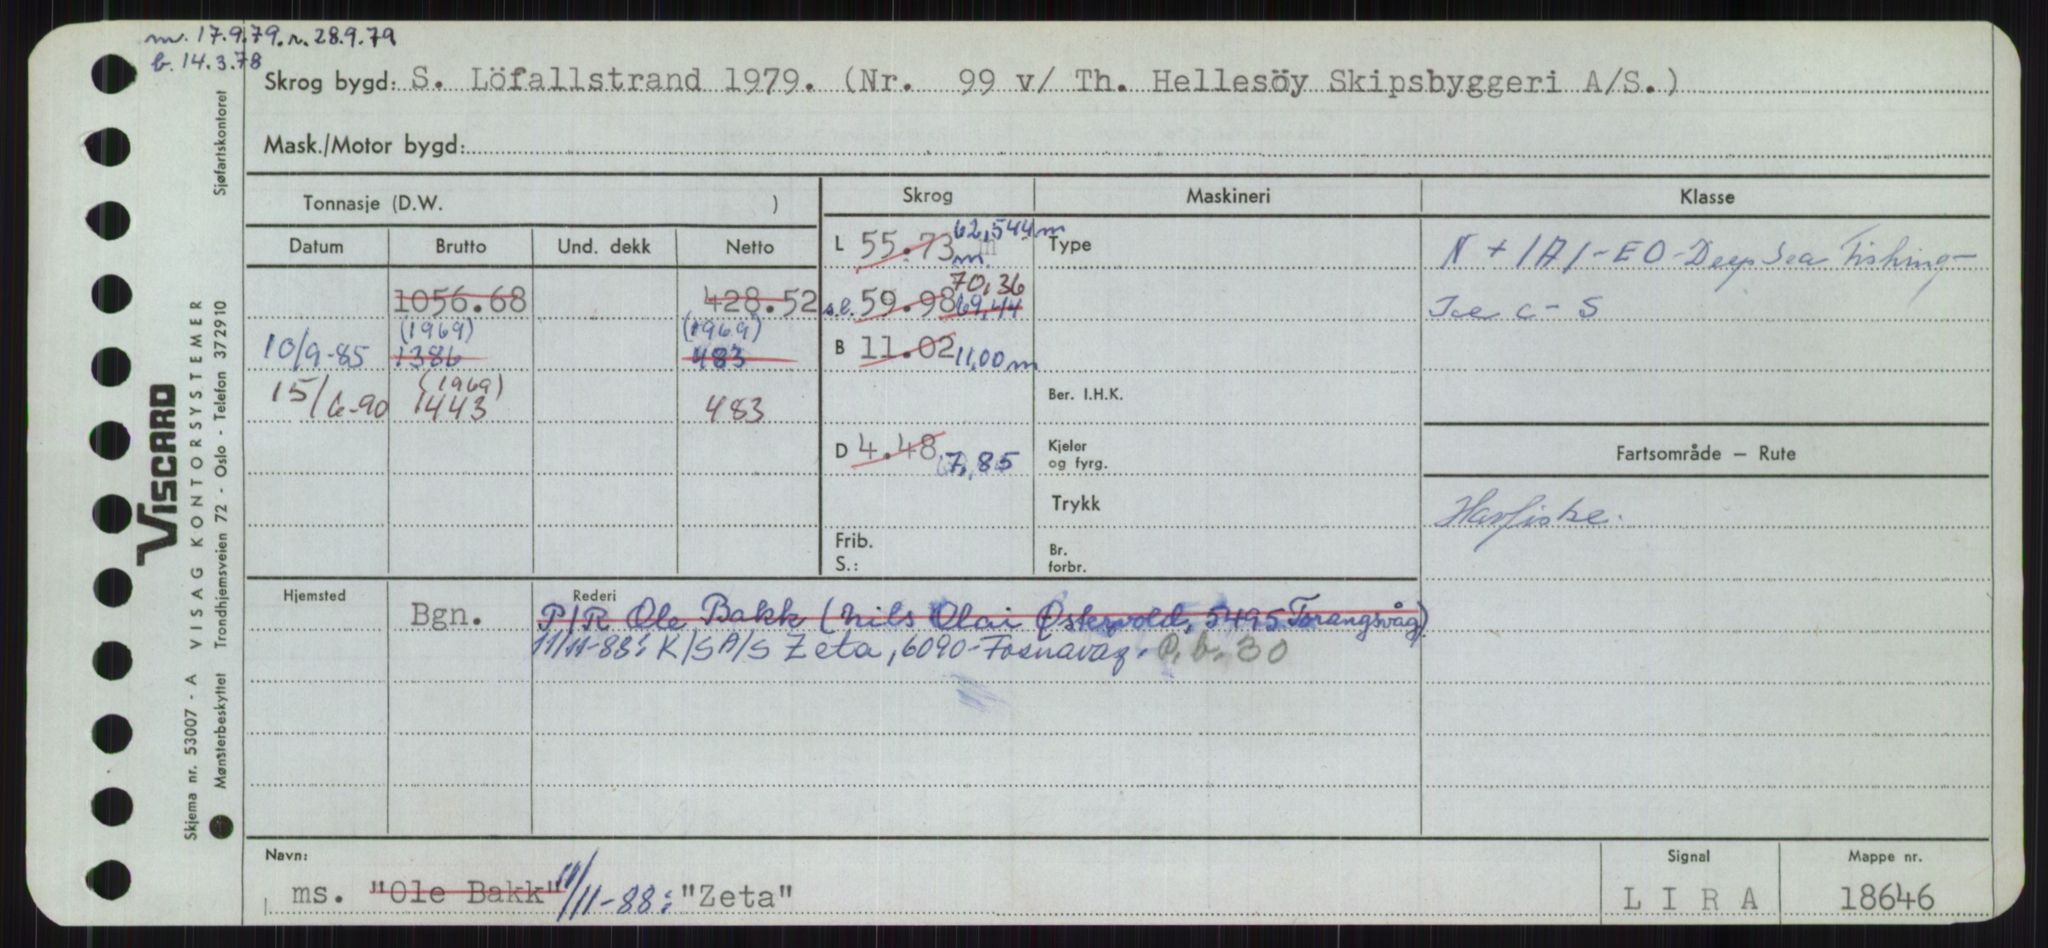 m. 17.9.79. r. 28.9.79
b. 14.3.78
Skrog bygd: S. Löfallstrand 1979. (Nr. 99 v/ Th. Hellesöy Skipsbyggeri A/S.)
Mask./Motor bygd:
Tonnasje (D.W. )
Skrog
Maskineri
Klasse
Datum Brutto Und. dekk Netto
L 55.73 m 62,544 m
Type
N + 1A1-EO-Deep Sea Fishing-
1056.68 428.52
s.l. 59.98 70,36
69,44
Ice C - S
(1969) (1969)
10/9-85 1386 483
B 11.02 11,00 m
(1969)
15/6-90 1443 483
Ber. I.H.K.
D 4.48 7,85
Kjeler
og fyrg.
Fartsområde – Rute
Trykk
Havfiske.
Frib.
S.:
Br.
forbr.
Hjemsted
Rederi
Bgn. P/R Ole Bakk (Nils Olai Østervold, 5495 Torangsvåg)
11/11-88: K/S A/S Zeta, 6090-Fosnavåg. P.b. 30
Navn:
Signal
Mappe nr.
ms. "Ole Bakk" 11/11-88: "Zeta"
L I R A
18646
Skjema nr. 53007 - A VISAG KONTORSYSTEMER
VISCARD
Mønsterbeskyttet Trondhjemsveien 72 - Oslo - Telefon 372910 Sjøfartskontoret